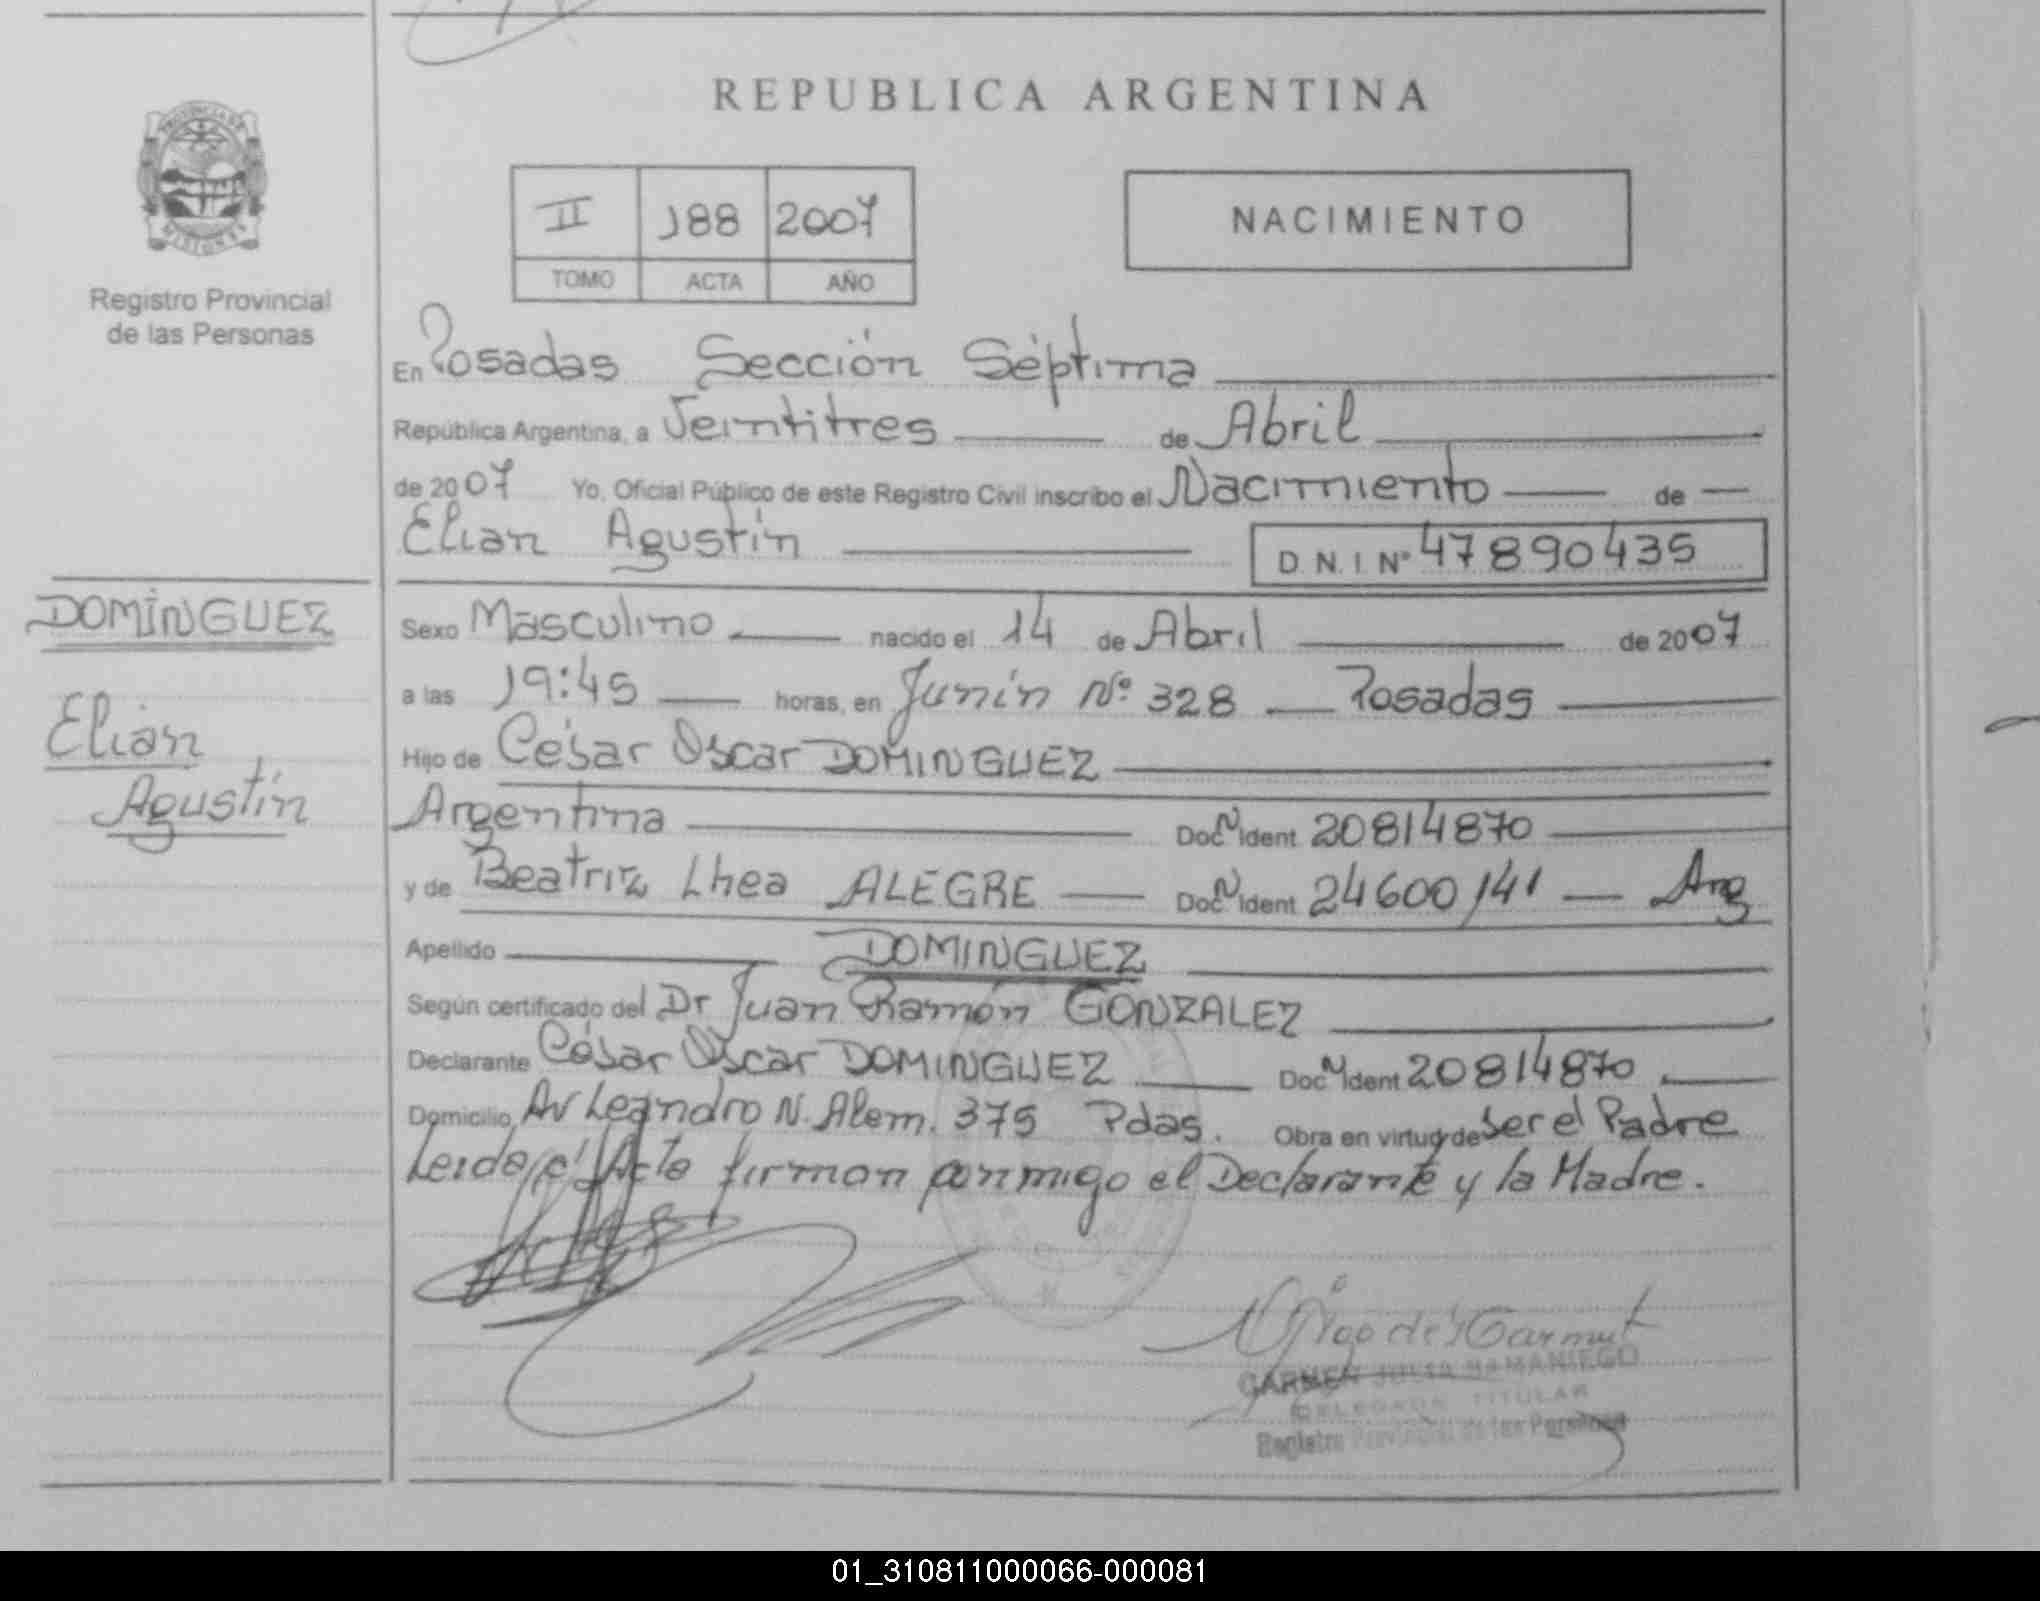 REPUBLICA ARGENTINA
PROVINCIA DE
MISIONES
Registro Provincial
de las Personas
II 188 2007
TOMO ACTA AÑO
NACIMIENTO
En Posadas Sección Séptima
República Argentina, a Veintitres de Abril
de 2007 Yo, Oficial Público de este Registro Civil inscribo el Nacimiento de
Elian Agustín D.N.I. Nº 47890435
DOMINGUEZ
Elian
Agustín
Sexo Masculino nacido el 14 de Abril de 2007
a las 19:45 horas, en Junín Nº 328 Posadas
Hijo de César Oscar DOMINGUEZ
Argentina Doc. Ident 20814870
y de Beatriz Lhea ALEGRE Doc. Ident 24600141 Arg
Apellido DOMINGUEZ
Según certificado del Dr Juan Ramón GONZALEZ
Declarante César Oscar DOMINGUEZ Doc. Ident 20814870
Domicilio Av Leandro N. Alem. 375 Pdas. Obra en virtud de ser el Padre
Leída el Acta firman conmigo el Declarante y la Madre.
CARMEN JULIA SAMANIEGO
DELEGADA TITULAR
Registro Provincial de las Personas
01_310811000066-000081